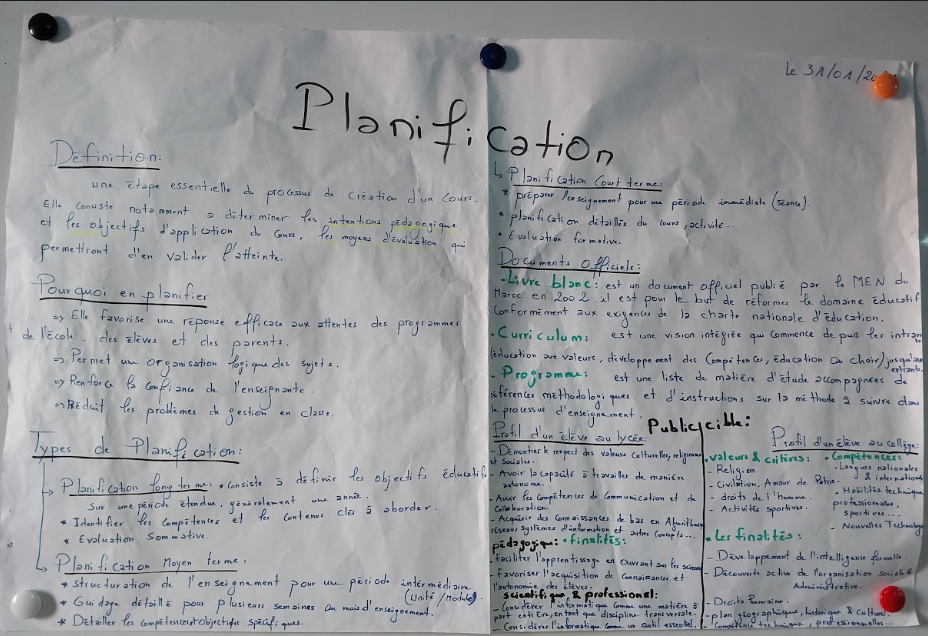 Le 31/01/20
Planification
Définition:
une étape essentielle du processus de création d'un cours.
Elle consiste notamment a déterminer les intentions pédagogique
et les objectifs d'application du cours, les moyens d'évaluation qui
permettront d'en valider l'atteinte.
Pourquoi en planifier
=> Elle favorise une réponse efficace aux attentes des programmes
de l'école, des élèves et des parents.
=> Permet une organisation logique des sujets.
=> Renforce la confiance de l'enseignante.
=> Réduit les problèmes de gestion en classe.
Types de Planification:
Planification long terme: consiste à définir les objectifs éducatifs
sur une période étendue, généralement une année.
* Identifier les compétences et les contenus clés à aborder.
* Evaluation Sommative.
Planification Moyen terme:
* Structuration de l'enseignement pour une période intermédiaire
(Unité/module)
* Guidage détaillé pour plusieurs semaines ou mois d'enseignement.
* Détailler les compétences et objectifs spécifiques.
Planification Court terme:
* préparer l'enseignement pour une période immédiate (séance).
* planification détaillés du cours, activité...
* Evaluation formative.
Documents officiels:
- Livre blanc: est un document officiel publié par le MEN du
Maroc en 2002. il est pour le but de réformes le domaine éducatif
Conformément aux exigences de la charte nationale d'éducation.
- Curriculum: est une vision intégrée qui commence depuis les intrants
(éducation aux valeurs, développement des Compétences, éducation au choix) jusqu'aux
extrants.
- Programme: est une liste de matière d'étude accompagnées de
références méthodologiques et d'instructions sur la méthode à suivre dans
le processus d'enseignement.
Public cible:
Profil d'un élève au lycée:
- Démontrer le respect des valeurs culturelles, religieuse
et Sociales.
- Avoir la capacité à travailler de manière
autonome.
- Avoir les Compétences de Communication et de
Collaboration.
- Acquérir des Connaissances de bas en Algorithme
réseaux systèmes d'information et autre Concepts...
pédagogique: • finalités:
- faciliter l'apprentissage en ouvrant sur les sciences
- Favoriser l'acquisition de Connaissances et
l'autonomie des élèves.
scientifique & professionnel:
- Considérer l'informatique comme une matière à
part entière, en tant que discipline transversale.
- Considérer l'informatique comme un outil essentiel.
Profil d'un élève au collège:
• valeurs & critères:
- Religion
- Civilisation, Amour de Patrie.
- droits de l'homme.
- Activités sportives.
• Compétences:
- Langues nationales
& internationales
- Habilités technique
professionnelles,
sportives...
- Nouvelles Technologies
• Les finalités:
- Développement de l'intelligence formelle.
- Découverte active de l'organisation sociale &
Administrative.
- Droits Humains.
- plan géographique, historique & Culturel
- Compétence technique, professionnelles...